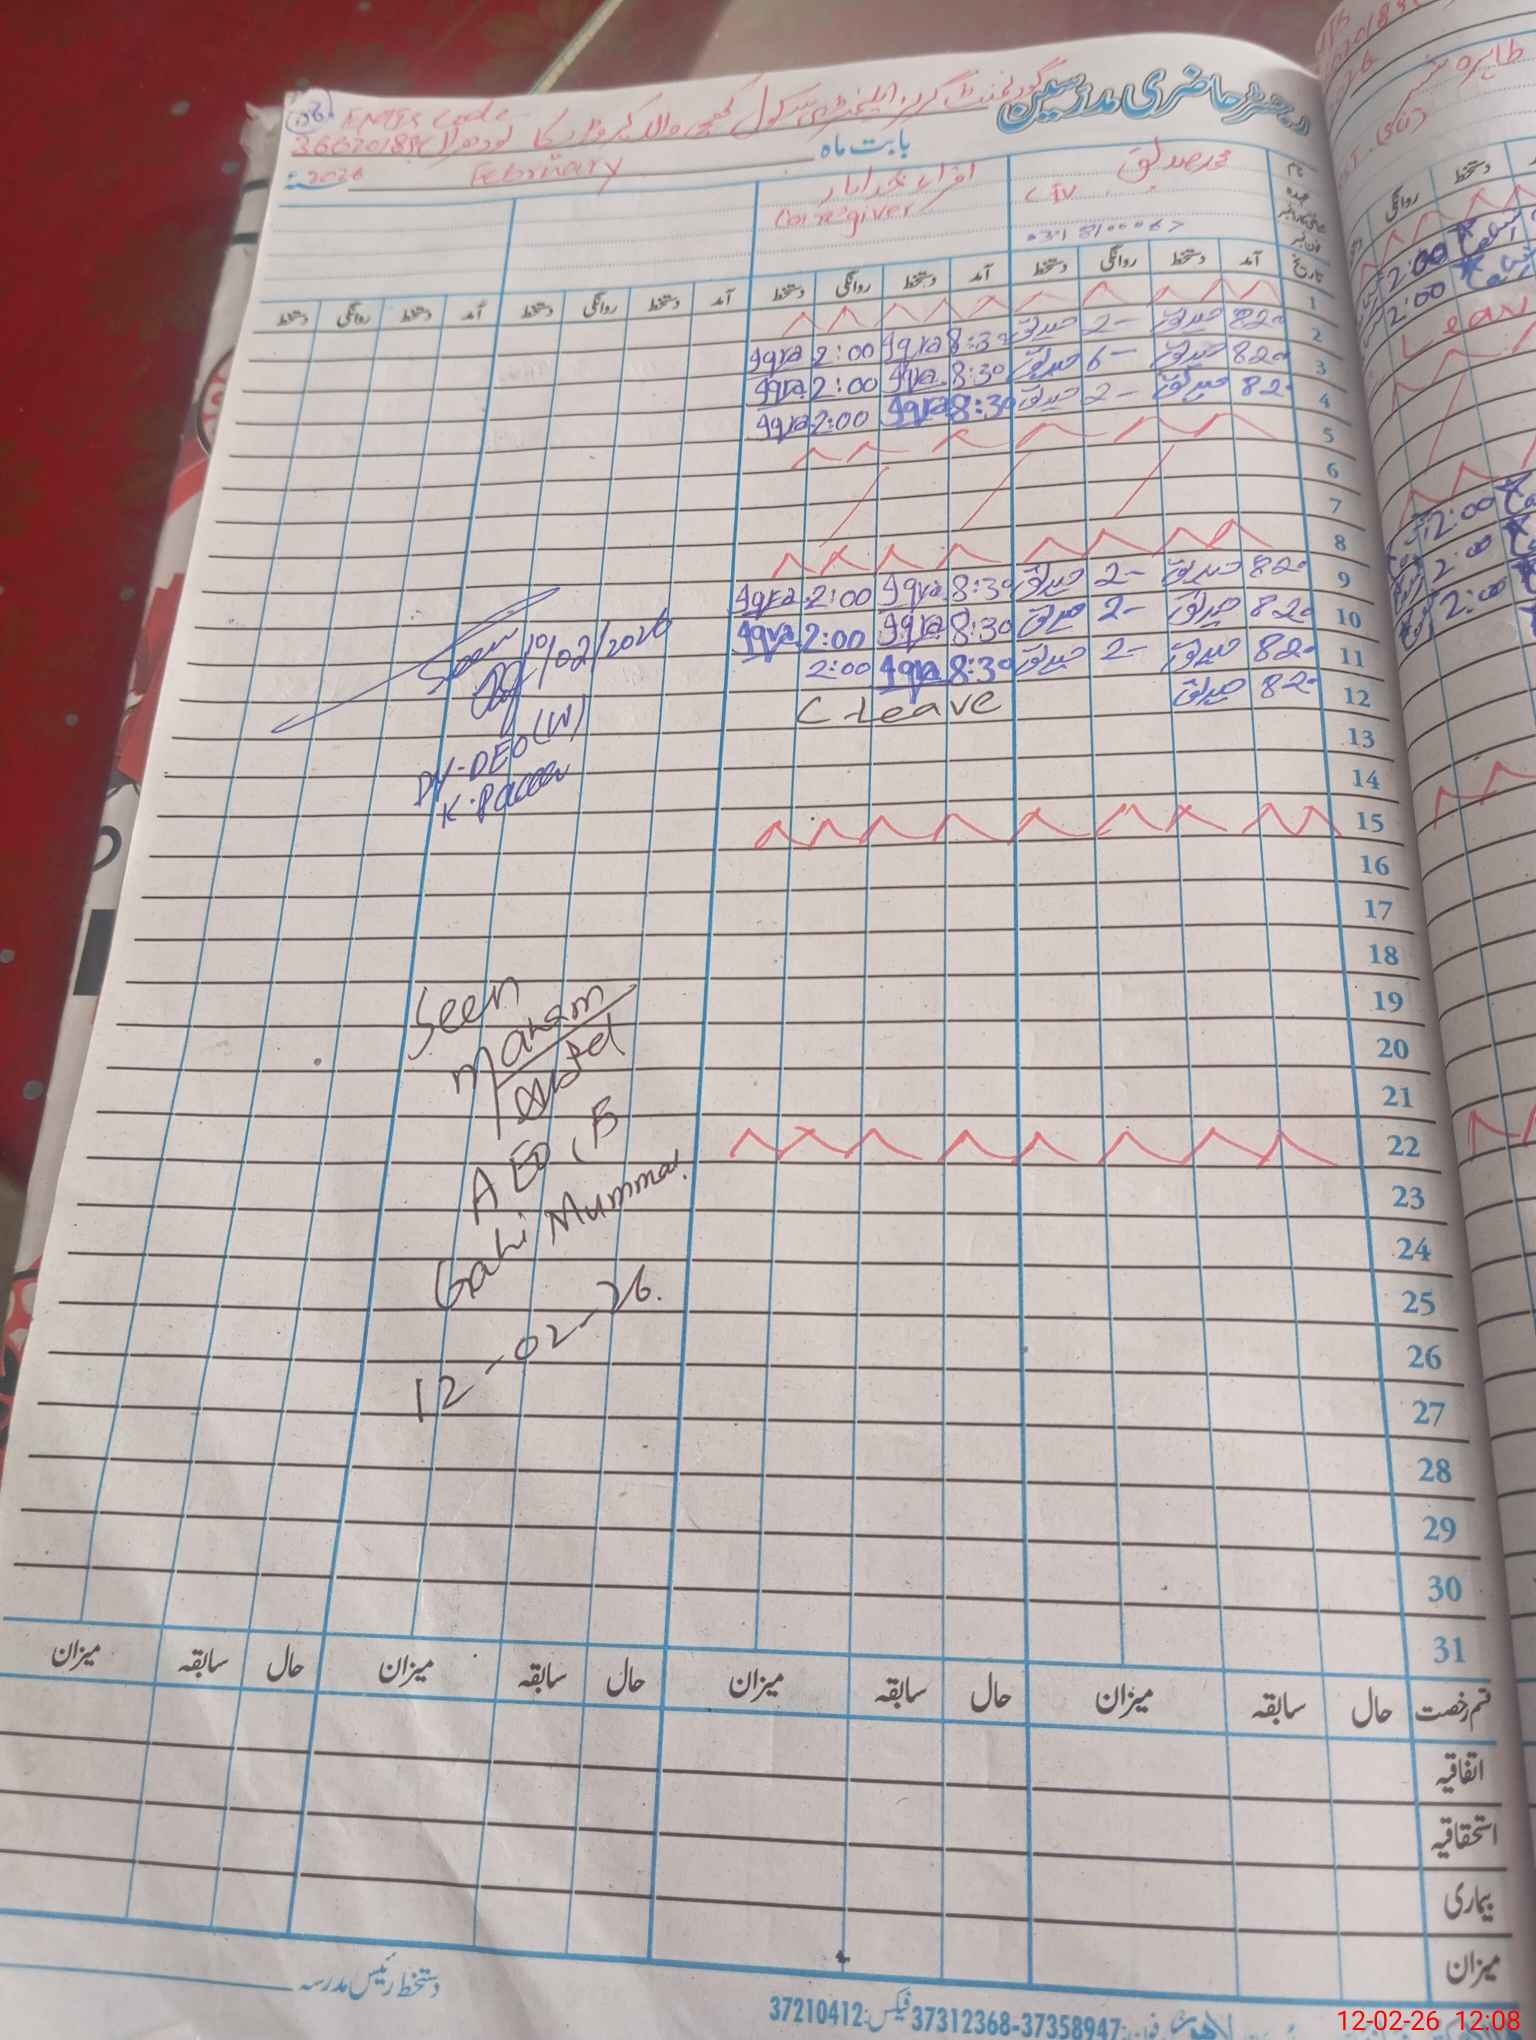 رجسٹر حاضری مدرسین
گورنمنٹ گرلز ایلیمنٹری سکول
EMIS Code
بابت ماہ February 2026
نام
محمد صدیق
اقراء
C IV
Caregiver
تاریخ آمد دستخط روانگی دستخط آمد دستخط روانگی دستخط آمد دستخط روانگی دستخط آمد دستخط روانگی دستخط
1
2 820 صدیق 2- صدیق 8:30 Iqra 2:00 Iqra
3 820 صدیق 6- صدیق 8:30 Iqra 2:00 Iqra
4 820 صدیق 2- صدیق 8:30 Iqra 2:00 Iqra
5
6
7
8
9 820 صدیق 2- صدیق 8:30 Iqra 2:00 Iqra
10 820 صدیق 2- صدیق 8:30 Iqra 2:00 Iqra
11 820 صدیق 2- صدیق 8:30 Iqra 2:00
12 820 صدیق C Leave
13
14
15
16
17
18
19
20
21
22
23
24
25
26
27
28
29
30
31
Seen
10/02/2026
DY-DEO(W)
Seen
Maham
AEO
Gahi Mummar
12-02-26.
قسم رخصت حال سابقہ میزان حال سابقہ میزان حال سابقہ میزان حال سابقہ میزان
اتفاقیہ
استحقاقیہ
بیماری
میزان
دستخط رئیس مدرسہ
37358947-37312368 فیکس: 37210412
12-02-26 12:08
2:00
2:00
Leave
2:00
2:00
2:00
روانگی دستخط